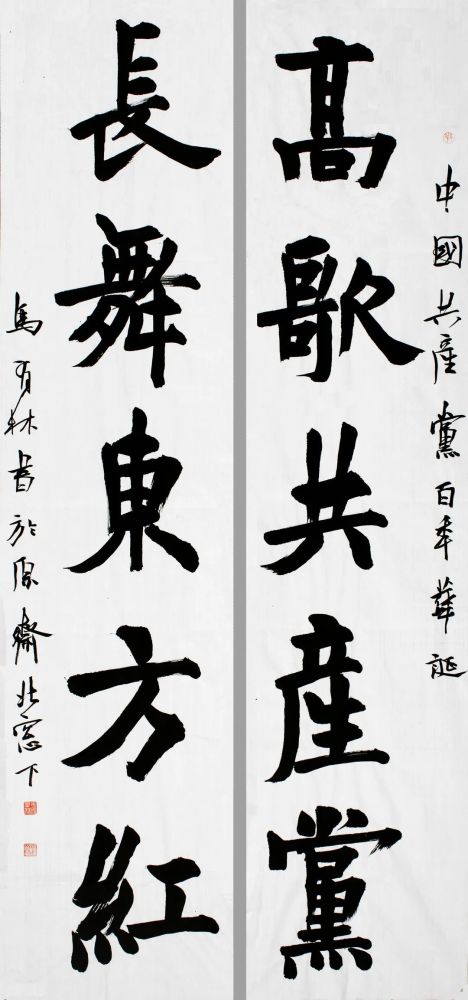 中國共產黨百年華誕
高歌共產黨
長舞東方紅
馬有林書於 齋北窓下